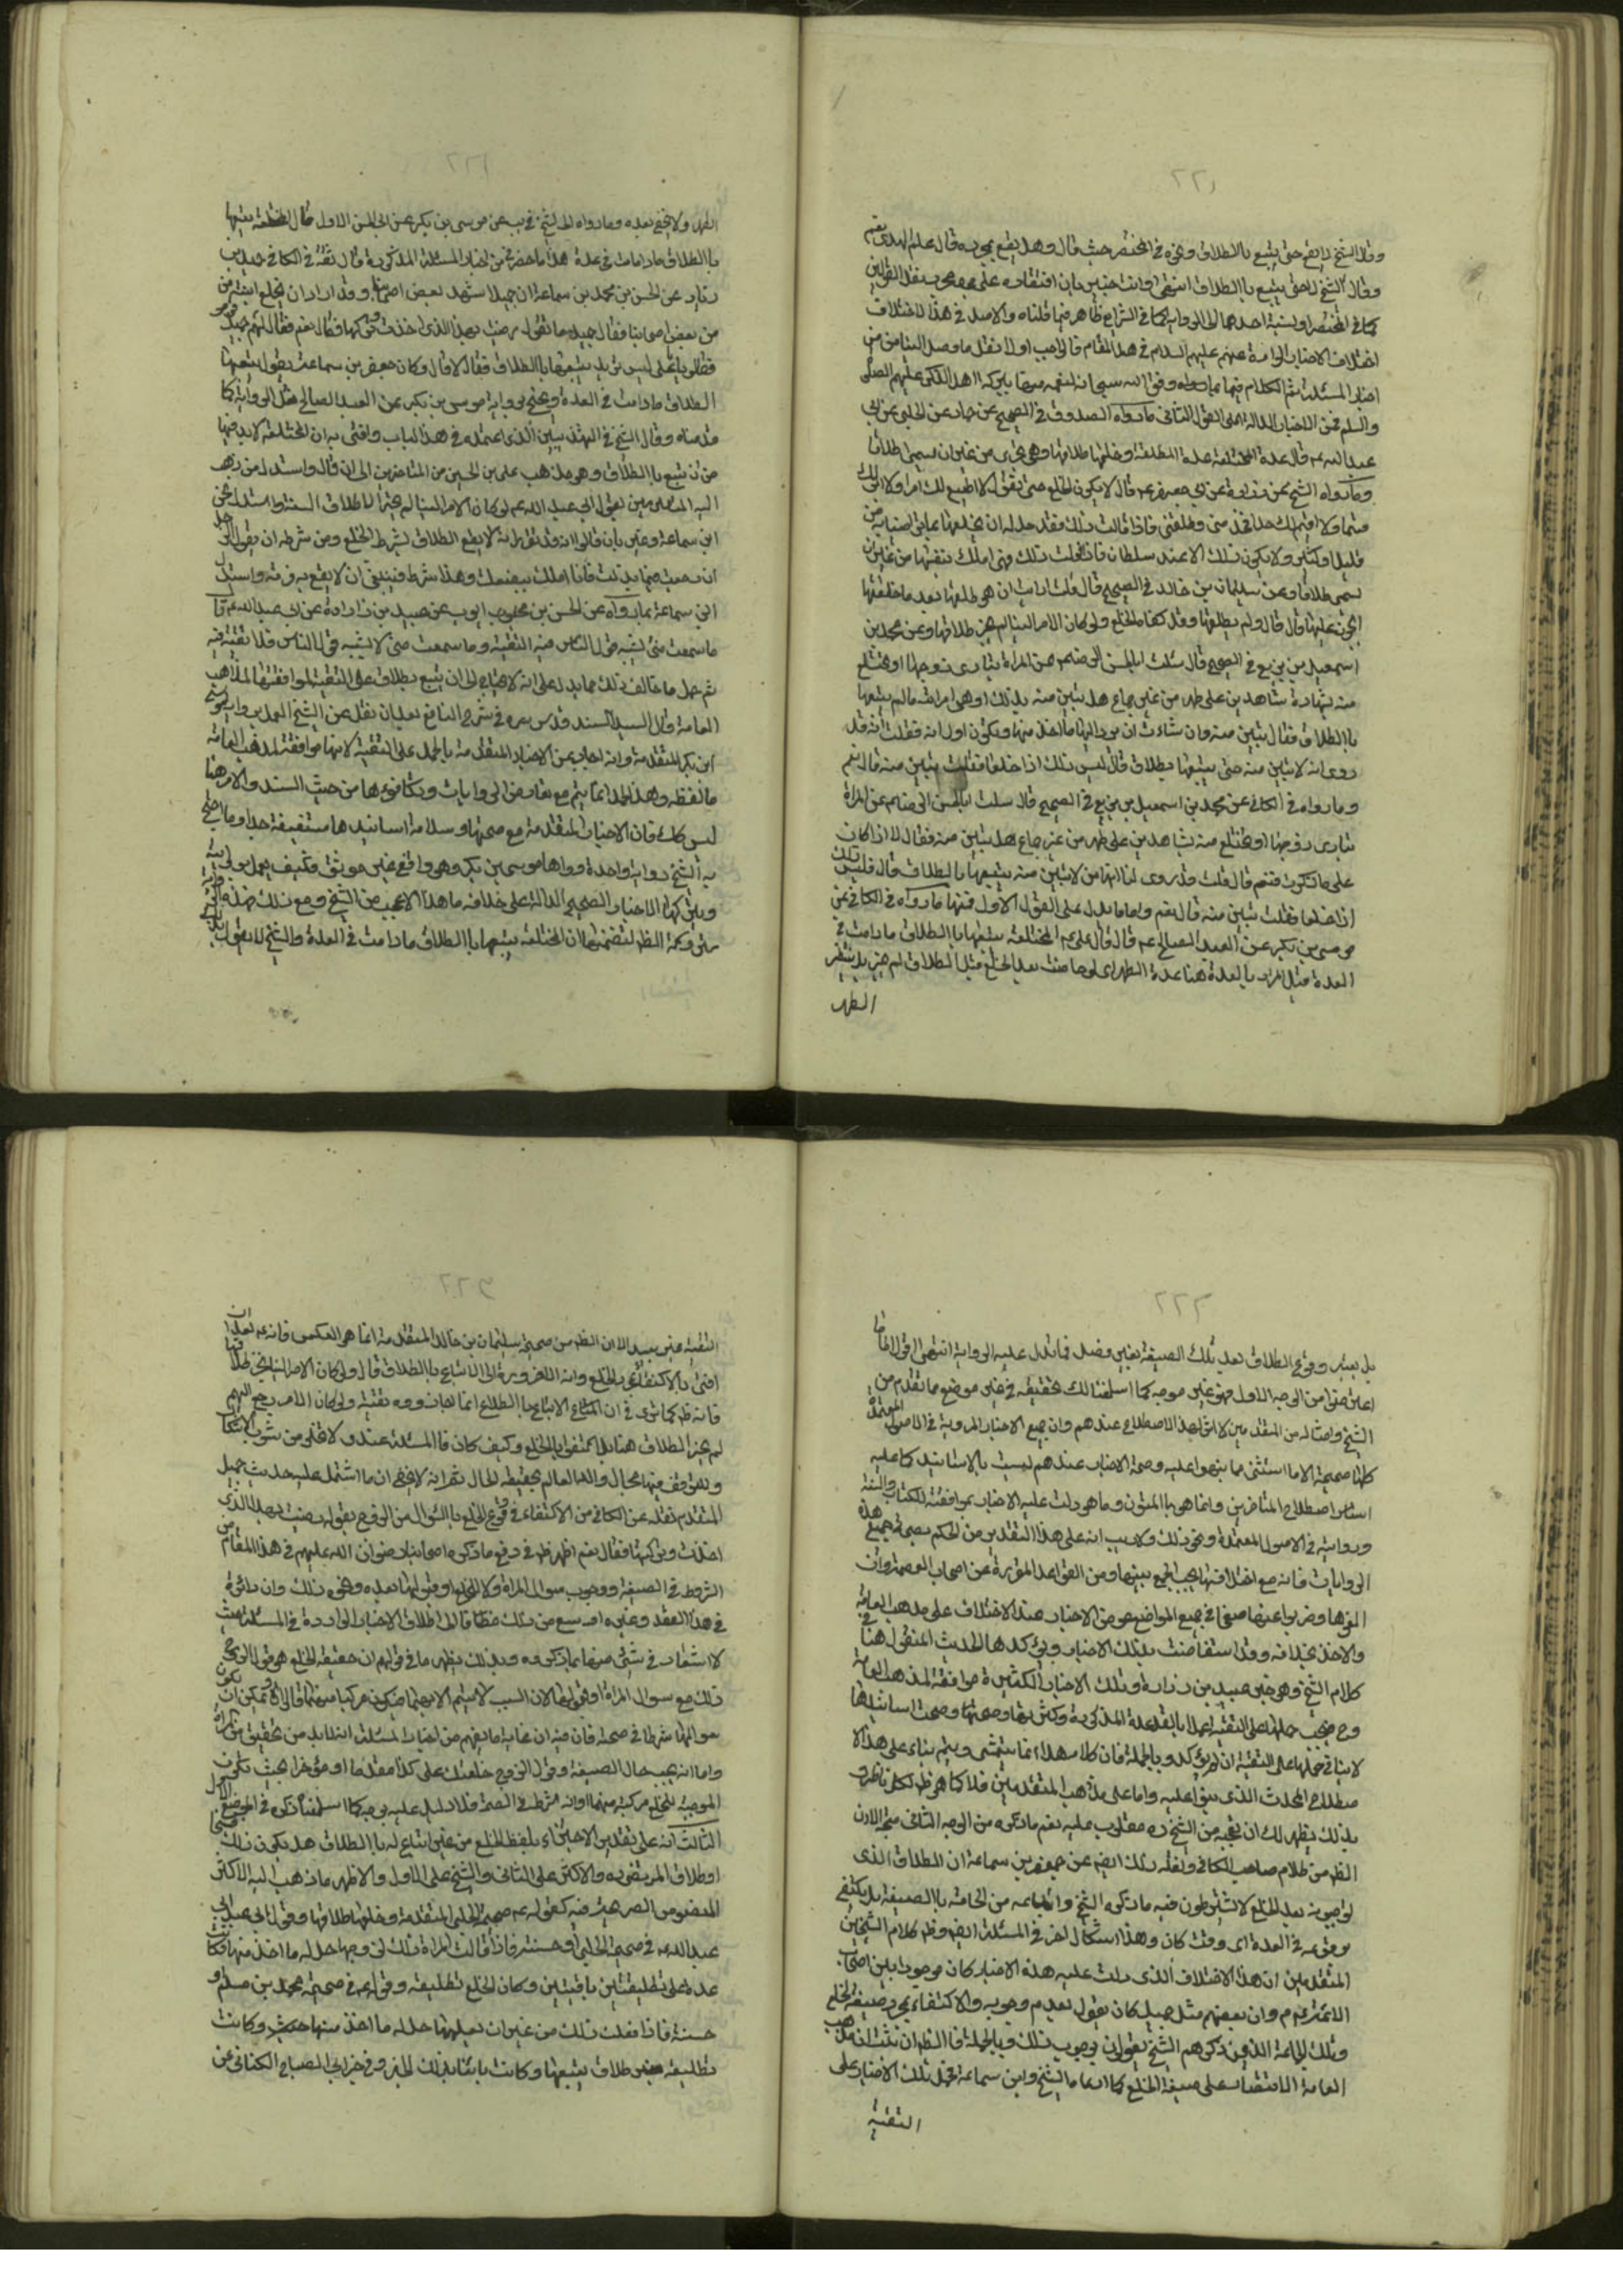 وقال الشيخ لا يقع حتى يتبع بالطلاق ونحوه في المختصر حيث قال وهل يقع بمجرده قال علم الهدى نعم
وقال الشيخ لا حتى يتبع بالطلاق انتهى وانت خبير بان
كما في المختصر او نسبة احدهما الى الرواية كما في الشرايع ظاهر فيما قلناه والاصل في هذا الاختلاف
اختلاف الاخبار الواردة عنهم عليهم السلام في هذا المقام فالواجب اولا نقل ما وصل الينا من
اخبار المسئلة ثم الكلام فيها بما وفق الله سبحانه لفهمه منها ببركة اهل الذكر عليهم الصلوة
والسلم فمن الاخبار الدالة على القول الثاني ما رواه الصدوق في الصحيح عن حماد عن الحلبي عن ابي
عبد الله عم قال عدة المختلعة عدة المطلقة وخلعها طلاقها وهي تجزي من غير ان يسمى طلاقا
وما رواه الشيخ عن زرارة عن ابي جعفر عم قال لا يكون الخلع حتى تقول لا اطيع لك امرا ولا ابر لك
قسما ولا اقيم لك حدا فخذ مني وطلقني فاذا قالت ذلك فقد حل له ان يخلعها بما تراضيا به من
قليل او كثير ولا يكون ذلك الا عند سلطان فاذا فعلت ذلك فهي املك بنفسها من غير ان
يسمى طلاقا وعن سليمان بن خالد في الصحيح قال قلت ارايت ان هو طلقها بعد ما خلعها
ايجوز عليها قال قال ولم يطلقها وقد كفاه الخلع ولو كان الامر الينا لم نجز طلاقها وعن محمد بن
اسمعيل بن بزيع في الصحيح قال سئلت ابا الحسن الرضا عم عن المراة تبارى زوجها او تختلع
منه بشهادة شاهدين على طهر من غير جماع هل تبين منه بذلك او هي امراته ما لم يتبعها
بالطلاق فقال تبين منه وان شاءت ان يرد اليها ما اخذ منها وتكون امراته فقلت انه قد
روى انه لا تبين منه حتى يتبعها بطلاق قال ليس ذلك اذا خلعا فقلت تبين منه قال نعم
وما رواه في الكافي عن محمد بن اسمعيل بن بزيع في الصحيح قال سئلت ابا الحسن الرضا عم عن المراة
تبارى زوجها او تختلع منه بشاهدين على طهر من غير جماع هل تبين منه فقال اذا كان
على ما ذكرت فنعم قال قلت قد روى لنا انها لا تبين منه حتى يتبعها بالطلاق قال فليس ذلك
اذا خلعا فقلت تبين منه قال نعم واما ما يدل على القول الاول فمنها ما رواه في الكافي عن
موسى بن بكر عن العبد الصالح عم قال قال علي عم المختلعة يتبعها بالطلاق ما دامت في
العدة قيل المراد بالعدة هنا عدة الطهر اى لو حاضت بعد الخلع قبل الطلاق لم يجز بل ينتظر
الطهر
الطهر ولا يخفى بعده وما رواه الشيخ في يب عن موسى بن بكر عن ابي الحسن الاول قال المختلعة يتبعها
بالطلاق ما دامت في عدة هذا ما حضرني من اخبار المسئلة المذكورة قال ثقة في الكافي حميد بن
زياد عن الحسن بن محمد بن سماعة ان جميلا شهد بعض اصحابنا وقد اراد ان يخلع ابنته من
من بعض اصحابنا فقال جميل ما تقول رضيت بهذا الذى اخذت وتركتها فقال نعم فقال لهم جميل قوموا
فقالوا يا ابا علي ليس تريد يتبعها بالطلاق فقال لا قال وكان جعفر بن سماعة يقول يتبعها
الطلاق ما دامت في العدة ويحتج برواية موسى بن بكر عن العبد الصالح مثل الرواية كما
قدمناه وقال الشيخ في التهذيبين الذى اعتمده في هذا الباب وافتى به ان المختلعة لا بد فيها
من ان يتبع بالطلاق وهو مذهب علي بن الحسين من المتاخرين الى ان قال واستدل من ذهب
اليه المتقدمين بقول ابي عبد الله عم لو كان الامر الينا لم نجز الا طلاق السنة واستدل الحسن
ابن سماعة وغيره بان قالوا انه قد تقرر انه لا يقع الطلاق بشرط والخلع ومن شرطه ان يقول الرجل
ان رجعت فيما بذلت فانا املك ببضعك وهذا شرط فينبغى ان لا يقع به فرقة واستدل
ابن سماعة بما رواه عن الحسن بن محبوب ايوب عن عبيد بن زرارة عن ابي عبد الله عم قال
ما سمعت منى يشبه قول الناس فيه التقية وما سمعت منى لا يشبه قول الناس فلا تقية فيه
ثم حمل ما خالف ذلك مما يدل على انه لا يحتاج الى ان يتبع بطلاق على التقية لموافقتها لمذاهب
العامة وقال السيد السند قدس سره في شرح النافع بعد ان نقل عن الشيخ العمل برواية موسى
ابن بكر المتقدمة وانه اجاب عن الاخبار المتقدمة بالحمل على التقية لانها موافقة لمذهب العامة
ما لفظه وهذا الحمل انما يتم مع تعارض الروايات وتكافؤها من حيث السند والامر هنا
ليس كك فان الاخبار المتقدمة مع صحتها وسلامة اسانيدها مستفيضة جدا وما احتج
به الشيخ رواية واحدة رواها موسى بن بكر وهو واقفي غير موثق فكيف يعمل بروايته
ويترك الاخبار الصحيحة الدالة على خلافه ما هذا الا عجيب من الشيخ ومع ذلك فهذه الرواية
متروكة الظهر لتضمنها ان المختلعة يتبعها بالطلاق ما دامت في العدة والشيخ لا يقول بذلك
بل يعتبر وقوع الطلاق بعد تلك الصيغة بغير فصل فما تدل عليه الرواية انتهى اقول اما ما
اعترض به من الوجه الاول فهو غير موجه كما اسلفنا لك تحقيقه في غير موضع مما تقدم من
الشيخ وامثاله من المتقدمين لا اثر لهذا الاصطلاح عندهم وان جميع الاخبار المروية في الاصول المعتمدة
كلها صحيحة الا ما استثنى مما نبهوا عليه وصحة الاخبار عندهم ليست بالاسانيد كما عليه
اساس اصطلاح المتاخرين وانما هو بالمتون وما هو دلت عليه الاخبار بموافقته للكتاب والسنة
وروايته في الاصول المعتمدة ونحو ذلك ولا ريب انه على هذا التقدير من الحكم بصحة جميع هذه
الروايات فانه مع اختلافها يجب الجمع بينها ومن القواعد المقررة عن اصحاب العصمة وان
الغوها وضربوا عنها صفحا في جميع المواضع هو عرض الاخبار عند الاختلاف على مذهب العامة
والاخذ بخلافه وقد استفاضت بذلك الاخبار ويؤكدها الحديث المنقول هنا في
كلام الشيخ وهو خبر عبيد بن زرارة وتلك الاخبار الكثيرة موافقة لمذهب العامة
وح فيجب حملها على التقية عملا بالقاعدة المذكورة وكثرتها وصحتها وصحة اسانيدها
لا ينافي حملها على التقية ان لم يؤكده وبالجملة فان كلامه هذا انما يتمشى ويتم بناء على هذا الا
صطلاح المحدث الذى بنى عليه واما على مذهب المتقدمين فلا كما هو ظاهر لكل ناظر و
بذلك يظهر لك ان تعجبه من الشيخ ره مقلوب عليه نعم ما ذكره من الوجه الثاني متجه الا ان
الظهر من كلام صاحب الكافي ونقله ذلك ايضا عن جعفر بن سماعة ان الطلاق الذى
يوجبونه بعد الخلع لا يشترطون فيه ما ذكره الشيخ واتباعه من الحاقه بالصيغة بل يكتفى
بوقوعه في العدة اى وقت كان وهذا اشكال اخر في المسئلة ايضا وظهر كلام الشيخين
المتقدمين ان هذا الاختلاف الذى دلت عليه هذه الاخبار كان موجودا بين اصحاب
الائمة عم وان بعضهم مثل جميل كان يقول بعدم وجوبه والاكتفاء بمجرد صيغة الخلع
وتلك الجماعة الذين ذكرهم الشيخ يقولون بوجوب ذلك وبالجملة فالظهر ان ثبت ان مذهب
العامة الاقتصار على صيغة الخلع كما ادعاه الشيخ وابن سماعة تحمل تلك الاخبار على
التقية
التقية غير بعيد الا ان الظهر من صحيحة سليمان بن خالد المتقدمة انما هو العكس فانه عم بعد ان
افتى بالاكتفاء بالخلع وانه لا ضرورة الى الاتباع بالطلاق قال ولو كان الامر الينا لم نجز طلاقها
فانه ظهر كما ترى في ان الاتباع بالطلاق انما اجازوه تقية ولو كان الامر رجع اليهم
لم نجز الطلاق هنا بل اكتفوا بالخلع وكيف كان فالمسئلة عندى لا تخلو من شوب الاشكال
وللتوقف فيها مجال والله العالم بحقيقة الحال ثم انه لا يخفى ان ما اشتمل عليه حديث جميل
المتقدم نقله عن الكافي من الاكتفاء في وقوع الخلع بالسؤال من الزوج بقوله رضيت بهذا الذى
اخذت وتركتها فقال نعم اظهر ظهر في دفع ما ذكره اصحابنا رضوان الله عليهم في هذا المقام من
الشروط في الصيغة ووجوب سؤال المراة ولا او قبولها بعده ونحو ذلك وان دائرة
في هذا العقد وغيره اوسع من ذلك اطلاق الاخبار الواردة في المسئلة حيث
لا اشعار في شئ منها بما ذكروه وبذلك يظهر ما في قولهم ان حقيقة الخلع هو قول الزوج
ذلك مع سؤال المراة او قبولها لان السبب لا يتم الا بهما فيكون مركبا منهما قالوا ويمكن ان يكون
سؤالها شرطا في صحته فان فيه ان غاية ما يفهم من اخبار المسئلة انه لا بد من تحقق كراهة
واما انه يجب حال الصيغة وقول الزوج خلعتك على كذا مقدما او مؤخرا بحيث تكون
الموجبة للخلع مركبة منهما او انه شرط في الصحة فلا دليل عليه بوجه كما اسلفنا ذكره في الموضع الاول
الثالث انه على تقدير الاجتزاء بلفظ الخلع من غير اتباع له بالطلاق هل يكون ذلك فسخا
او طلاقا المرتضى ره والاكثر على الثاني والشيخ على الاول والاظهر ما ذهب اليه الاكثر
للنصوص الصريحة فيه كقوله عم صحيحة الحلبي المتقدمة وخلعها طلاقها وقول ابي عبد
عبد الله عم في صحيحة الحلبي او حسنته فاذا قالت المراة ذلك لزوجها حل له ما اخذ منها وكانت
عنده على تطليقتين باقيتين وكان الخلع تطليقة وقوله عم في صحيحة محمد بن مسلم او
حسنة فاذا فعلت ذلك من غير ان يعلمها حل له ما اخذ منها وكانت
تطليقة بغير طلاق يتبعها وكانت باينا بذلك الخبر وفي خبر ابي الصباح الكناني عن